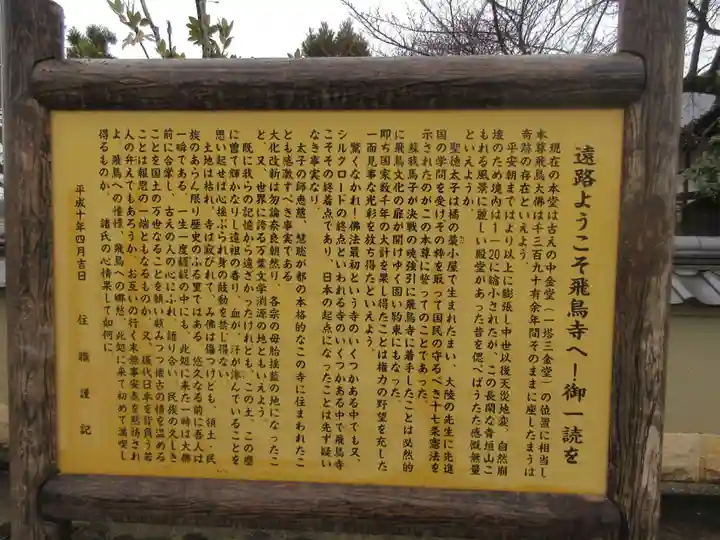 遠路ようこそ飛鳥寺へ!御一読を
現在の本堂は古えの中金堂(一塔三金堂)の位置に相当し
本尊飛鳥大佛は千三百九十有余年間そのままに座したまうは
奇跡の存在といえよう。
平安朝まではより以上に膨張し中世以後天災地変、自然崩
壊のため境内は1—20に縮小されたが、この長閑な青垣山こ
もれる風景に麗しい殿堂があった昔を偲べばうたた感慨無量
といえようか。
聖徳太子は橘の藁小屋で生まれたまい、大陸の先生に先進
国の学問を受けその粋を取って国民の守るべき十七条憲法を
示されたのがこの本尊に誓ってのことであった。
蘇我馬子が決戦の晩強引に飛鳥寺に着手したことは必然的
に飛鳥文化の扉が開けゆく固い約束にもなった。
即ち国家数千年の大計を果し得たことは権力の野望を充した
一面見事な光彩を放ち得たといえよう。
驚くなかれ!佛法最初という寺のいくつかある中でも又、
シルクロードの終点といわれる寺のいくつかある中で飛鳥寺
こそその終着点であり、日本の起点になったことは先ず疑い
なき事実なり。
太子の師恵慈、慧聡が都の本格的なこの寺に住まわれたこ
とも感激すべき事実である
大化改新は勿論奈良朝然り、各宗の母胎揺籃の地になったこ
と、又、世界に誇る万葉文学渕源の地ともいえよう。
既に我らの記憶から遠ざかったけれども、この土、この塵
に曽て輝かなりし遠祖の香り、血が、汗が滲んでいることを
思い起せば心揺ぶられ身の鼓動を禁じ得ない。
土地は枯れ、寺は寂びれ、み佛は傷つけども、領土、民
族のあらん限り歴史のつぶる里ではある。悠久なる前に吾人は
一瞬である。一生一度輻輳の中にも、此処に来た一時は大佛
前に合掌し、古えの人の心にふれ、語り合い、民族の久しき
ことを国土の万世なることを願い頼みつつ懐古の情を温める
ことは報恩の一端ともなるものか。又、現代日本を背負う若
人の弁えでもあろうか。お互いの行く末無事安泰を慰祷され
よ、飛鳥への憧憬、飛鳥への郷愁、此処に来て初めて満喫し
得るものか。 諸氏の心情果して如何に。
平成十年四月吉日 住職謹記